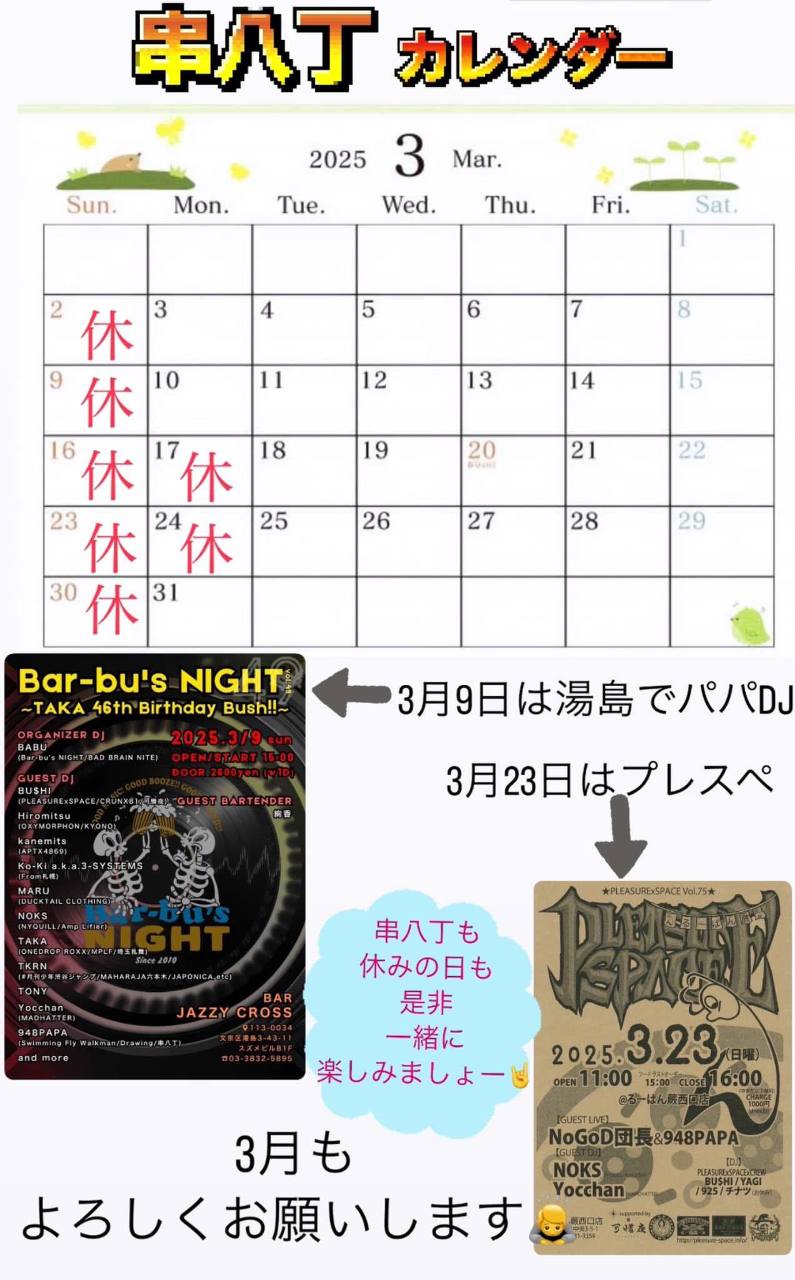 串八丁 カレンダー
2025 3 Mar.
Sun. Mon. Tue. Wed. Thu. Fri. Sat.
1
2 休 3 4 5 6 7 8
9 休 10 11 12 13 14 15
16 休 17 休 18 19 20 21 22
23 休 24 休 25 26 27 28 29
30 休 31
Bar-bu's NIGHT
~TAKA 46th Birthday Bush!!~
ORGANIZER DJ
BABU
(Bar-bu's NIGHT/BAD BRAIN NITE)
GUEST DJ
BU$HI
(PLEASURExSPACE/CRUNX81/可惜夜)
Hiromitsu
(OXYMORPHON/KYONO)
kanemits
(APTX4869)
Ko-Ki a.k.a.3-SYSTEMS
(From札幌)
MARU
(DUCKTAIL CLOTHING)
NOKS
(NYQUILL/Amp Lifier)
TAKA
(ONEDROP ROXX/MPLF/埼玉乱舞)
TKRN
(#月刊少年渋谷ジャンプ/MAHARAJA六本木/JAPONICA,etc)
TONY
Yocchan
(MADHATTER)
948PAPA
(Swimming Fly Walkman/Drawing/串八丁)
and more
2025.3/9 sun
OPEN/START 15:00
DOOR 2600yen (w1D)
GUEST BARTENDER
絢香
Bar-bu's
NIGHT
Since 2010
BAR
JAZZY CROSS
〒113-0034
文京区湯島3-43-11
スズメビルB1F
☎03-3832-5895
3月9日は湯島でパパDJ
3月23日はプレスペ
串八丁も
休みの日も
是非
一緒に
楽しみましょー🤘
★PLEASURExSPACE Vol.75★
PLEASURE
SPACE
2025.3.23(日曜)
OPEN 11:00 フードラストオーダー 15:00 CLOSE 16:00
@るーぱん蕨西口店
CHARGE
1000円
【GUEST LIVE】
NoGoD団長&948PAPA
【GUEST DJ】
NOKS
Yocchan
【DJ】
PLEASURExSPACExCREW
BUSHI / YAGI
/ 925 / チナツ
supported by
可惜夜
http://pleasure-space.info/
3月も
よろしくお願いします🙇